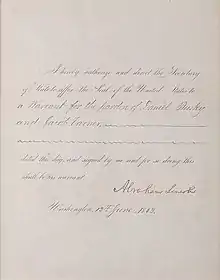 I hereby authorize and direct the Secretary
of State to affix the Seal of the United States to
a Warrant for the pardon of Daniel Dusky
and Jacob Varner
dated this day, and signed by me and for so doing this
shall be his warrant.
Abraham Lincoln
Washington, 13th June, 1863.